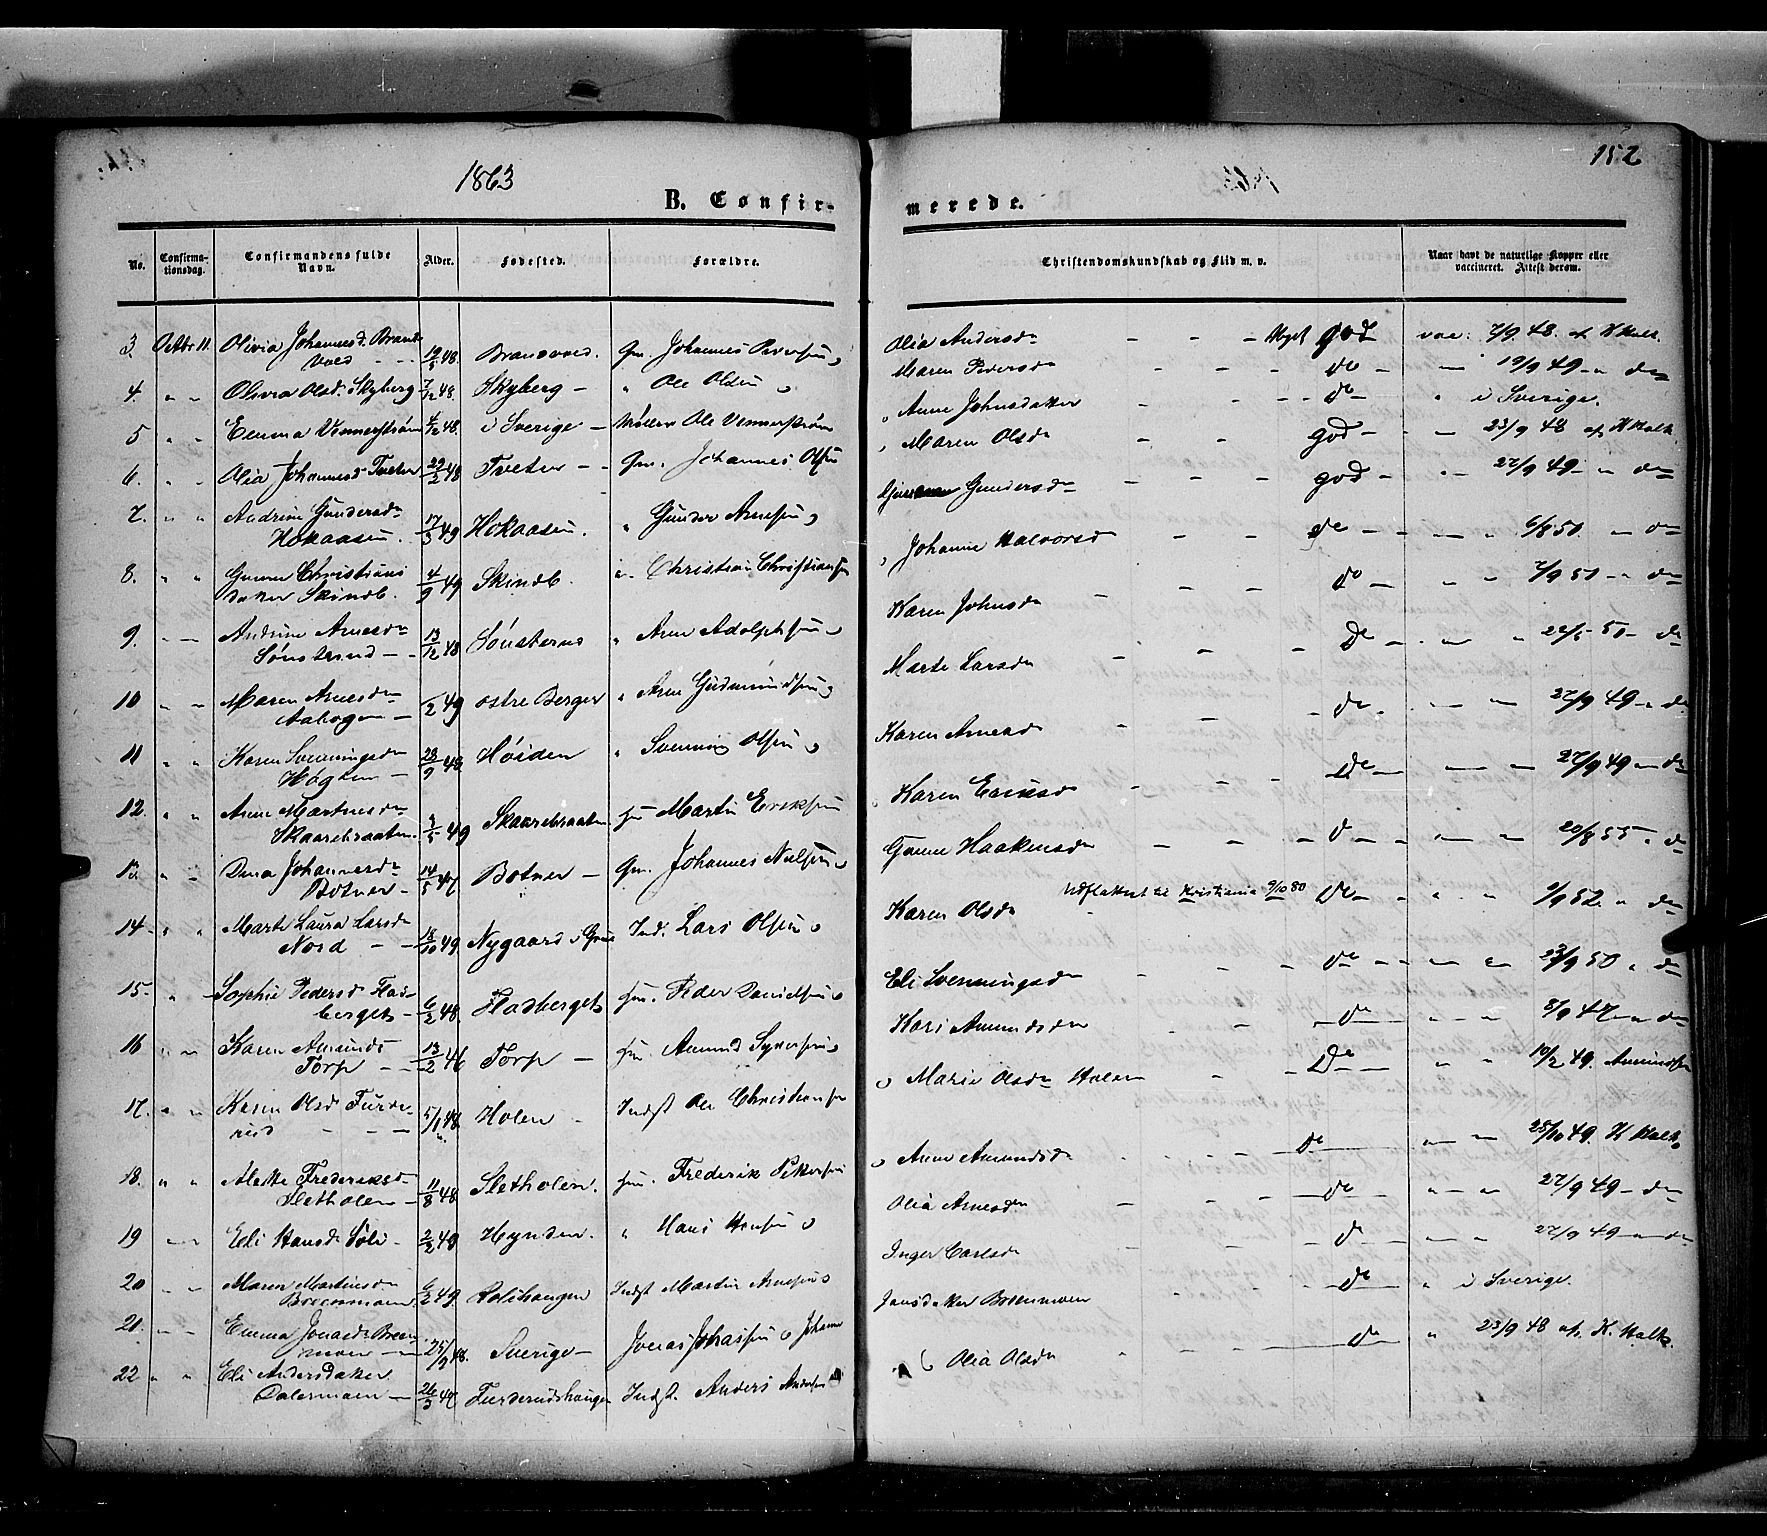 152
1863
B. Confir-
merede.
No.
Confirma-
tionsdag.
Confirmandens fulde
Navn.
Alder.
Fødested.
Forældre.
Christendomskundskab og Flid m. v.
Naar havt de naturlige Kopper eller
vaccineret. Attest derom.
3. Octbr 11. Olivia Johannesd. Brands
vold - - 19/5 48. Brandsvold. Gm Johannes Pedersen o Olia Andersdr - - - Meget god vac: 7/9 48. af K Holt.
4. " " Olivia Olsd. Skyberg 7/12 48. Skyberg - " Ole Olsen o Maren Pedersdr - - - do - - 19/9 49 - " do
5 " " Emma Vennerstrøm 4/12 48. i Sverige - Møller Ole Vennerstrøm o Anne Johnsdatter - - - do - " i Sverige.
6. " " Olia Johannesd Tveten 22/2 48 Tveten - - Gm. Johannes Olsen o Maren Olsdr - - god - - - 23/9 48 af K Holt.
7. " " Andrine Gundersdr
Hokaasen. 17/3 49 Hokaasen " Gunder Arnesen o Gundersdr - - - god - " - 27/9 49 - " do
8. " " Gunne Christians
datter Skindb. 4/9 49 Skindb. " Christian Christiansen o Johanne Halvorsd - - - do - - - " 6/8 50. - do
9. - - Andrine Arnesdr
Sønsterud - - 13/12 48 Sønsterud " Arne Adolphsen o Karen Johnsdr - - - do - " " 7/9 50 - " do
10 " " Maren Arnesdr
Aabogen - /2 49 østre Berger " Arne Gudmundsen o Marte Larsdr - - - do - - " " 22/5 50 - do
11 " " Karen Svenningsdr
- 28/9 48 Høiden " Svenning Olsen o Karen Arnesdr - - do - - " 27/9 49 - do
12. " " Anne Martinesdr
Skaarebraaten. /5 49 Skaarebraaten Gm Martin Eriksen o Karen Eriksd - - - do - - - - 27/9 49 - do
13. " " Dina Johannesdr
Botner - 14/5 47 Botner - Gm. Johannes Nilsen o Gunne Haakensdr - - - do - " - 20/8 55 " do
14 - " " Marte Laura Larsdr
Nord - - 18/10 49. Nygaard i Grue Ind. Lars Olsen o Karen Olsdr Udflyttet til Kristiania 9/10 80 do - - " " /9 52. " do
15. " - Sophie Pedersd Flad-
berget - 6/2 48. Fladberget Gm. Peder Danielsen o Eli Svenningsdr - - - do - - - - 23/9 50 " do
16 " " Karen Amunds
Torp - - 13/2 46 Torp - Gm. Amund Syversen o Kari Amundsdr - - - do " " - 8/9 47 - " do
17. " " Karen Olsd Furde-
rud - - - 5/1 48. Holen - Indst Ole Christiansen o Marie Olsdr Holen - - - do - " " 19/2 49. Amundsen
18. " " Mette Frederiksd
Sletholen - 11/8 48 Sletholen. Gm. Frederik Pettersen o Anne Amundsdr - - - do - - - 25/10 49. K Holt
19 - - Eli Hansdr Soli - 2/2 48 Hynden. " Hans Hansen o Olia Arnesdr - - - do " - " 27/9 49 - do
20 - - Maren Martinsdr
Breenmoen 6/2 49 Rolihaugen Indst Martin Arnesen o Inger Carlsdr - - - do - - - 27/9 49 - " do
21. " Emma Jonasdr Breen
moen - - 25/9 48. Sverige - Jonas Johassen o Johanne Jansdatter Breenmoen - - - do " i Sverige.
22 " " Eli Andersdatter
Dalermoen - 26/3 47 Furderudshaugen Indst. Anders Andersen o Olia Olsdr - - - do " 23/9 48 af. K. Holt.